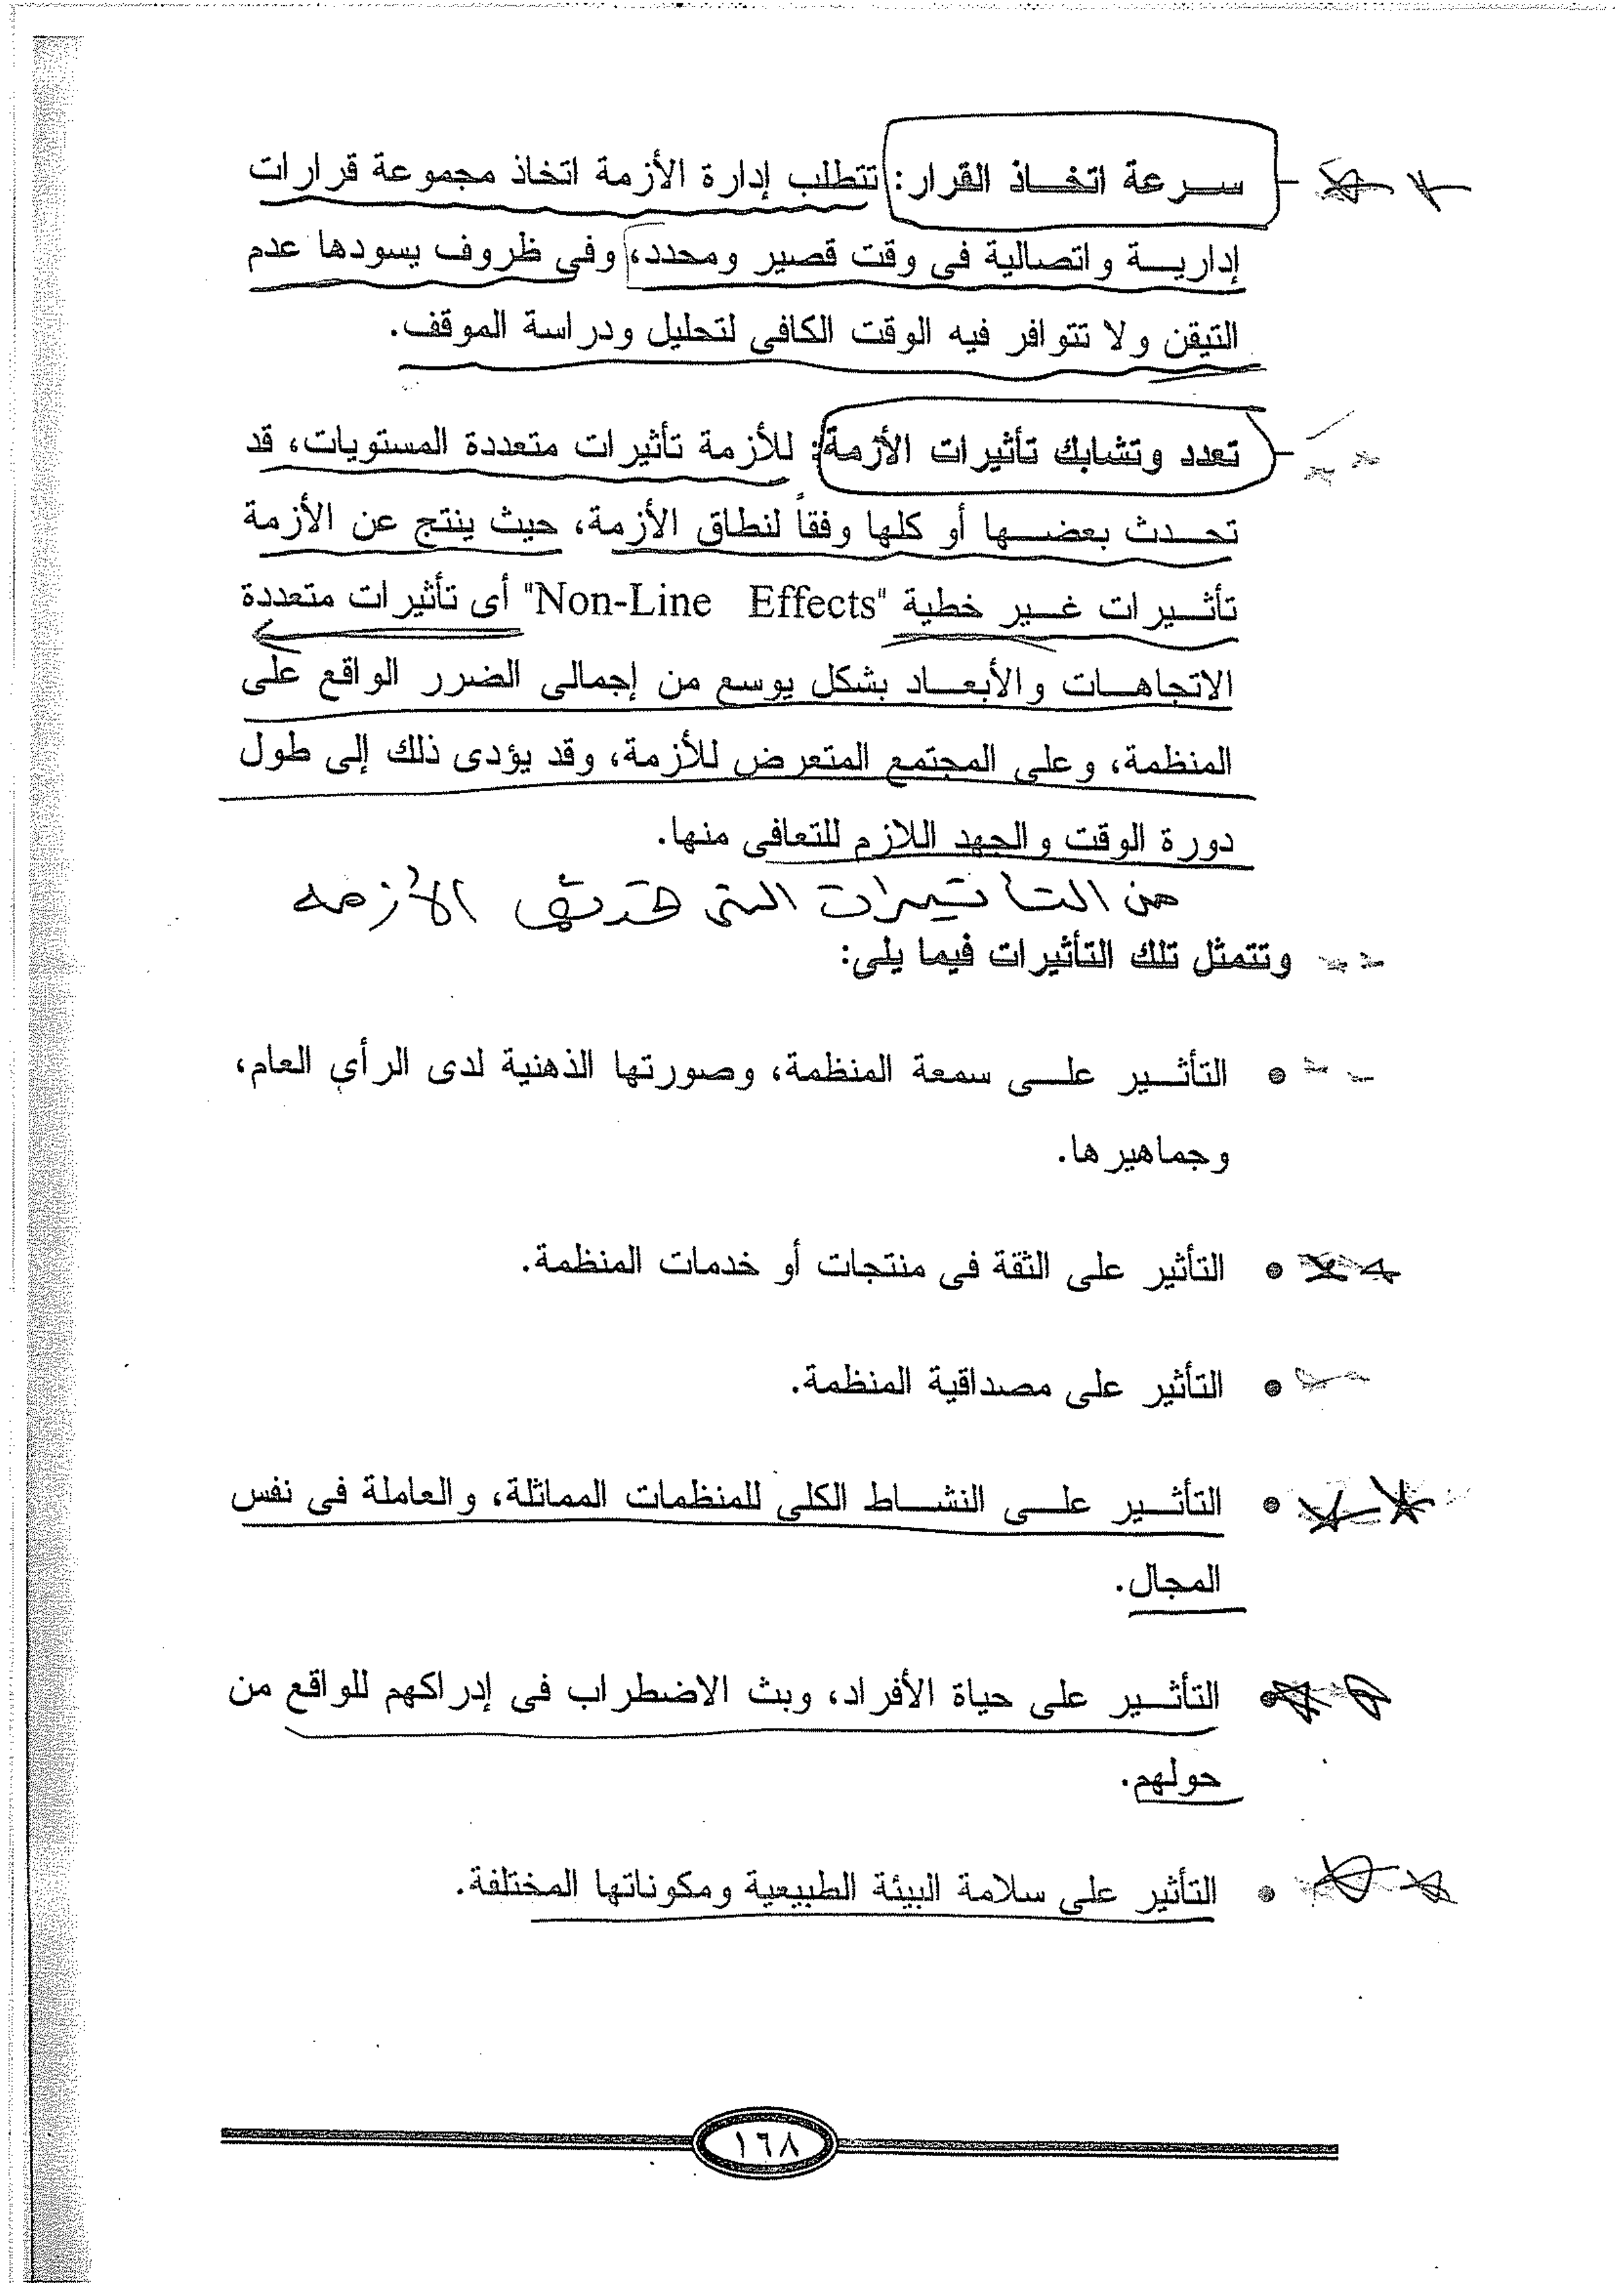 - سرعة اتخاذ القرار: تتطلب إدارة الأزمة اتخاذ مجموعة قرارات
إدارية واتصالية فى وقت قصير ومحدد، وفى ظروف يسودها عدم
التيقن ولا تتوافر فيه الوقت الكافى لتحليل ودراسة الموقف.
- تعدد وتشابك تأثيرات الأزمة: للأزمة تأثيرات متعددة المستويات، قد
تحدث بعضها أو كلها وفقاً لنطاق الأزمة، حيث ينتج عن الأزمة
تأثيرات غير خطية "Non-Line Effects" أى تأثيرات متعددة
الاتجاهات والأبعاد بشكل يوسع من إجمالى الضرر الواقع على
المنظمة، وعلى المجتمع المتعرض للأزمة، وقد يؤدى ذلك إلى طول
دورة الوقت والجهد اللازم للتعافى منها.
من التأثيرات التى تحدثها الأزمه
وتتمثل تلك التأثيرات فيما يلى:
• التأثير على سمعة المنظمة، وصورتها الذهنية لدى الرأي العام،
وجماهيرها.
• التأثير على الثقة فى منتجات أو خدمات المنظمة.
• التأثير على مصداقية المنظمة.
• التأثير على النشاط الكلى للمنظمات المماثلة، والعاملة فى نفس
المجال.
• التأثير على حياة الأفراد، وبث الاضطراب فى إدراكهم للواقع من
حولهم.
• التأثير على سلامة البيئة الطبيعية ومكوناتها المختلفة.
١٦٨